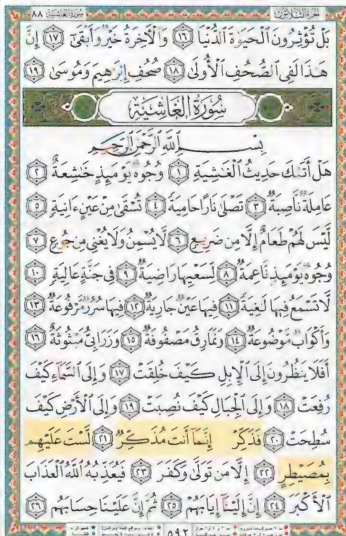 سُورَةُ الغَاشِيَة ٨٨
الجُزْءُ الثَّلَاثُونَ
بَلْ تُؤْثِرُونَ ٱلْحَيَوٰةَ ٱلدُّنْيَا ١٦ وَٱلْءَاخِرَةُ خَيْرٌ وَأَبْقَىٰٓ ١٧ إِنَّ
هَٰذَا لَفِى ٱلصُّحُفِ ٱلْأُولَىٰ ١٨ صُحُفِ إِبْرَٰهِيمَ وَمُوسَىٰ ١٩
سُورَةُ الغَاشِيَةِ
بِسْمِ ٱللَّهِ ٱلرَّحْمَٰنِ ٱلرَّحِيمِ
هَلْ أَتَىٰكَ حَدِيثُ ٱلْغَٰشِيَةِ ١ وُجُوهٌ يَوْمَئِذٍ خَٰشِعَةٌ ٢
عَامِلَةٌ نَّاصِبَةٌ ٣ تَصْلَىٰ نَارًا حَامِيَةً ٤ تُسْقَىٰ مِنْ عَيْنٍ ءَانِيَةٍ ٥
لَّيْسَ لَهُمْ طَعَامٌ إِلَّا مِن ضَرِيعٍ ٦ لَّا يُسْمِنُ وَلَا يُغْنِى مِن جُوعٍ ٧
وُجُوهٌ يَوْمَئِذٍ نَّاعِمَةٌ ٨ لِّسَعْيِهَا رَاضِيَةٌ ٩ فِى جَنَّةٍ عَالِيَةٍ ١٠
لَّا تَسْمَعُ فِيهَا لَٰغِيَةً ١١ فِيهَا عَيْنٌ جَارِيَةٌ ١٢ فِيهَا سُرُرٌ مَّرْفُوعَةٌ ١٣
وَأَكْوَابٌ مَّوْضُوعَةٌ ١٤ وَنَمَارِقُ مَصْفُوفَةٌ ١٥ وَزَرَابِىُّ مَبْثُوثَةٌ ١٦
أَفَلَا يَنظُرُونَ إِلَى ٱلْإِبِلِ كَيْفَ خُلِقَتْ ١٧ وَإِلَى ٱلسَّمَآءِ كَيْفَ
رُفِعَتْ ١٨ وَإِلَى ٱلْجِبَالِ كَيْفَ نُصِبَتْ ١٩ وَإِلَى ٱلْأَرْضِ كَيْفَ
سُطِحَتْ ٢٠ فَذَكِّرْ إِنَّمَآ أَنتَ مُذَكِّرٌ ٢١ لَّسْتَ عَلَيْهِم
بِمُصَيْطِرٍ ٢٢ إِلَّا مَن تَوَلَّىٰ وَكَفَرَ ٢٣ فَيُعَذِّبُهُ ٱللَّهُ ٱلْعَذَابَ
ٱلْأَكْبَرَ ٢٤ إِنَّ إِلَيْنَآ إِيَابَهُمْ ٢٥ ثُمَّ إِنَّ عَلَيْنَا حِسَابَهُم ٢٦
٥٩٢